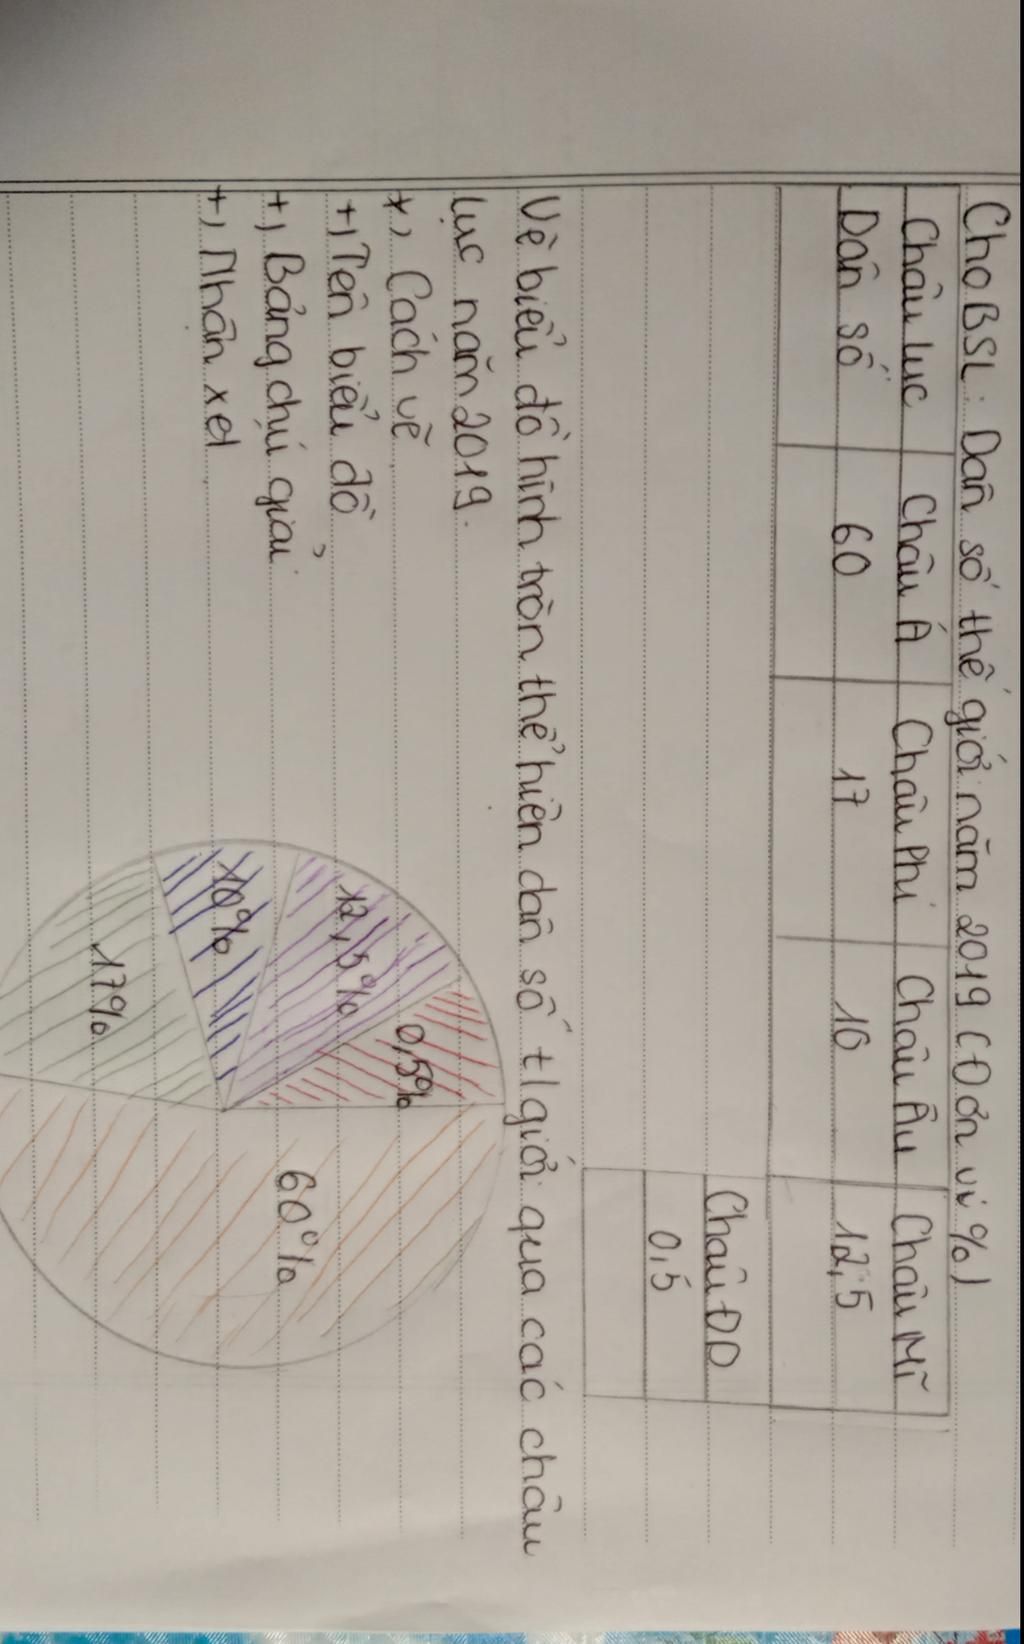 Cho BSL: Dân số thế giới năm 2019 (Đơn vị %)
Châu lục Châu Á Châu Phi Châu Âu Châu Mĩ
Dân số 60 17 10 12,5
Châu ĐD
0,5
Vẽ biểu đồ hình tròn thể hiện dân số t/giới qua các châu
lục năm 2019.
*, Cách vẽ
+, Tên biểu đồ
+, Bảng chú giải
+, Nhân xét
0,5%
12,5%
10%
60%
17%